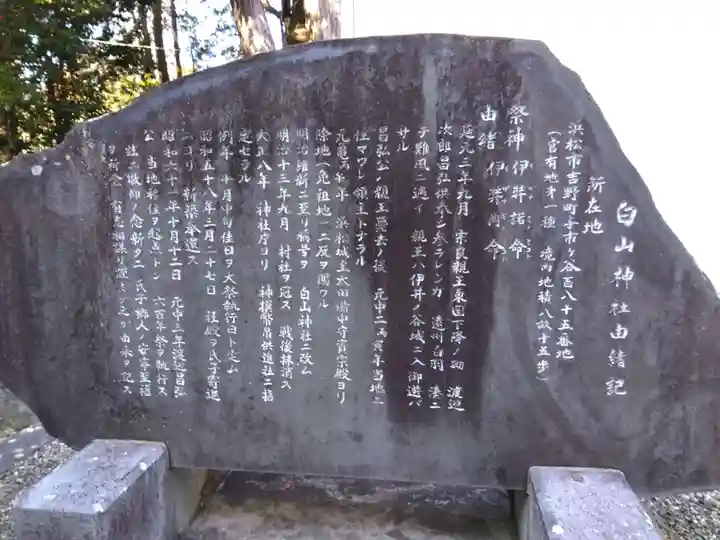 白山神社由緒記
所在地
浜松市吉野町字市ヶ谷百八十五番地
(官有地才一種 境内地積八畝十五歩)
祭神 伊弉諾命 伊弉冉命
由緒
延元三年九月 宗良親王東国下降ノ砌 渡辺
次郎昌弘供奉シ参ラレシガ 遠州白羽 湊ニ
テ難風ニ遇イ 親王ハ伊井ノ谷城ニ入御遊バ
サル
昌弘公ハ親王薨去ノ後 元中二丙寅年当地ニ
住マワレ領主トナラル
元亀 年 浜松城主太田備中守資宗殿ヨリ
除地(免祖地)一二反ヲ賜ワル
明治維新ニ至リ稱号ヲ 白山神社ニ改ム
明治十三年九月 村社ヲ冠ス 戦後抹消ス
大正八年 神社庁ヨリ 神撰幣帛供進社ニ指
定セラル
例年 十月中旬佳日ヲ大祭執行日ト定ム
昭和五十八年三月二十七日 社殿ヲ氏子寄進
ニヨリ 新築奉遷ス
昭和六十一年十月十二日 元中三年渡辺昌弘
公 当地移住ヲ起点トシ 六百年祭ヲ執行ス
茲ニ敬仰ノ念新タニ 氏子郷人ノ安寧至福
ヲ祈念 有志相謀リ 之ガ由來ヲ記ス